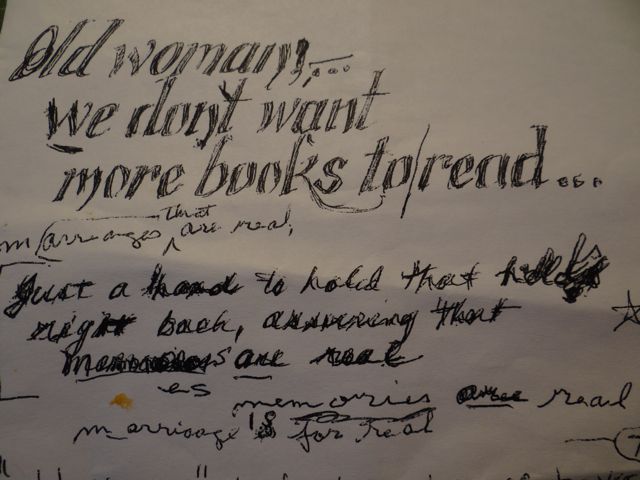 Old woman,...
we don't want
more books to/read...
marriages that are real,
Just a hand to hold that holds
right back, assuming that
are real
es
memories are real
marriage is for real